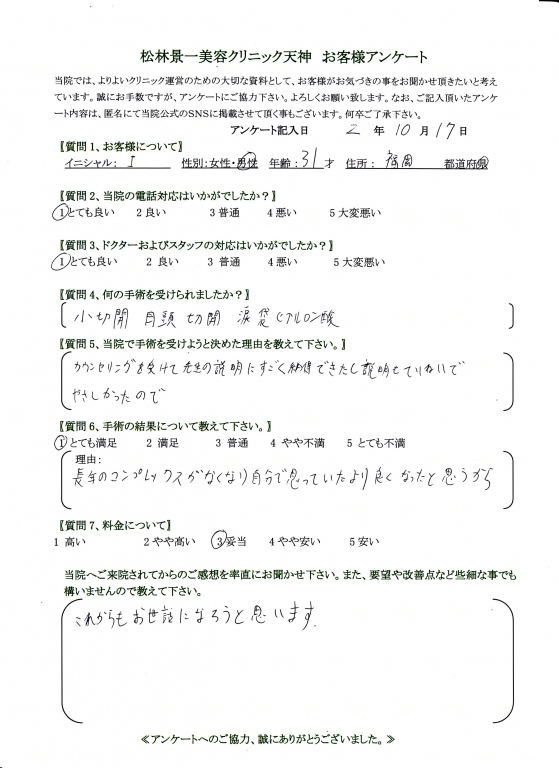 松林景一美容クリニック天神　お客様アンケート
当院では、よりよいクリニック運営のための大切な資料として、お客様がお気づきの事をお聞かせ頂きたいと考え
ています。誠にお手数ですが、アンケートにご協力下さい。よろしくお願い致します。なお、ご記入頂いたアンケ
ート内容は、匿名にて当院公式のSNSに掲載させて頂く事もございます。何卒ご了承下さい。
アンケート記入日　2 年 10 月 17 日
〖質問 1、お客様について〗
イニシャル： I　性別：女性・男性　年齢：31才　住所： 福岡　都道府県
〖質問 2、当院の電話対応はいかがでしたか？〗
1とても良い　2 良い　3 普通　4 悪い　5 大変悪い
〖質問 3、ドクターおよびスタッフの対応はいかがでしたか？〗
1とても良い　2 良い　3 普通　4 悪い　5 大変悪い
〖質問 4、何の手術を受けられましたか？〗
小切開 目頭切開 涙袋ヒアルロン酸
〖質問 5、当院で手術を受けようと決めた理由を教えて下さい。〗
カウンセリングを受けて先生の説明にすごく納得できたし説明もていねいで
やさしかったので
〖質問 6、手術の結果について教えて下さい。〗
1とても満足　2 満足　3 普通　4 やや不満　5 とても不満
理由：
長年のコンプレックスがなくなり自分で思っていたより良くなったと思うから
〖質問 7、料金について〗
1 高い　2 やや高い　3妥当　4 やや安い　5 安い
当院へご来院されてからのご感想を率直にお聞かせ下さい。また、要望や改善点など些細な事でも
構いませんので教えて下さい。
これからもお世話になろうと思います.
≪アンケートへのご協力、誠にありがとうございました。≫